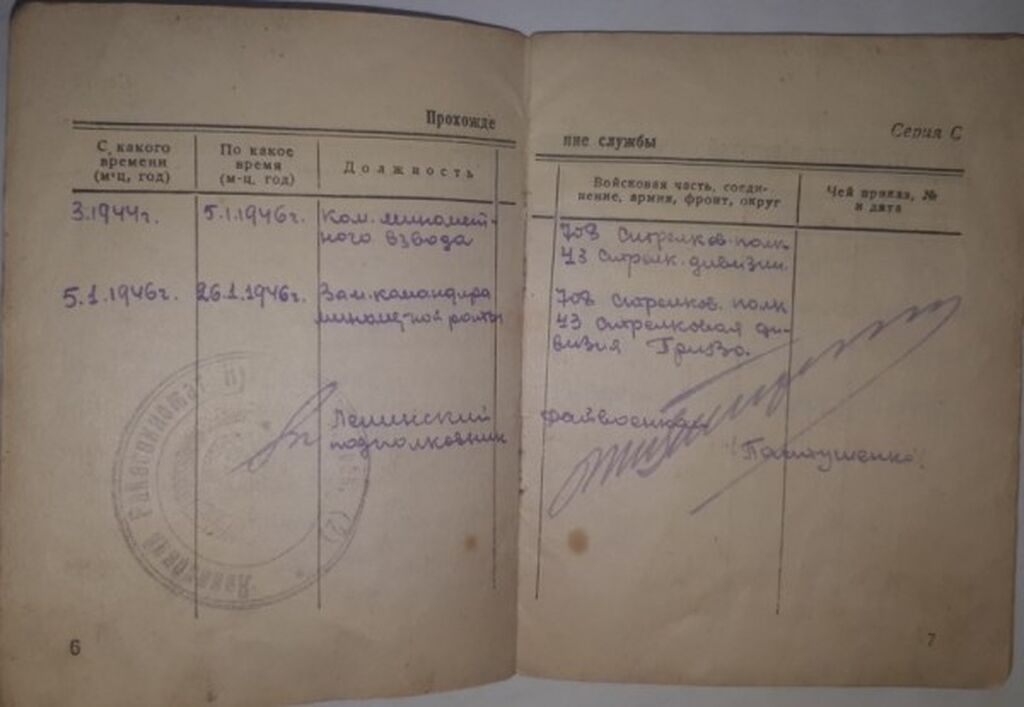 Прохожде
ние службы
Серия С
С какого
времени
(м-ц, год)
По какое
время
(м-ц, год)
Должность
Войсковая часть, соеди-
нение, армия, фронт, округ
Чей приказ, №
и дата
3.1944г.
5.1.1946г.
Ком. миномет-
ного взвода
708 Стрелков. полк
43 Стрелк. дивизии
5.1.1946г.
26.1.1946г.
Зам. командира
минометной роты
708 Стрелков. полк
43 Стрелковая ди-
визия
Ленинский
райвоенком
подполковник
6
7